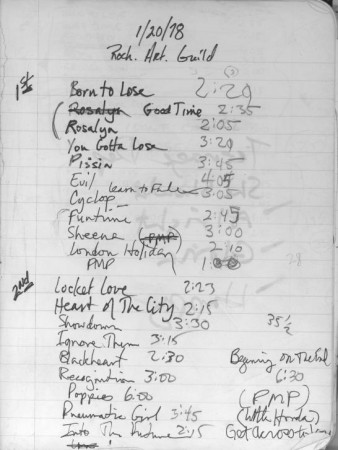 1/20/78
Roch. Art. Guild
1st
Born to Lose 2:20
Rosalyn Good Time 2:35
Rosalyn 2:05
You Gotta Lose 3:20
Pissin 3:45
Evil 4:05
Cyclop Learn to 3:05
Funtime 2:45
Sheena (PMP) 3:00
London Holiday 2:10
PMP 1:00
2nd
Locket Love 2:23
Heart of The City 2:15
Showdown 3:30 35 1/2
Ignore Them 3:15
Blackheart 2:30 Beginning of The End
Recognition 3:00 6:30
Poppies 6:00 (PMP)
Pneumatic Girl 3:45 (Little Honda)
Into The Future 2:15 Get across to